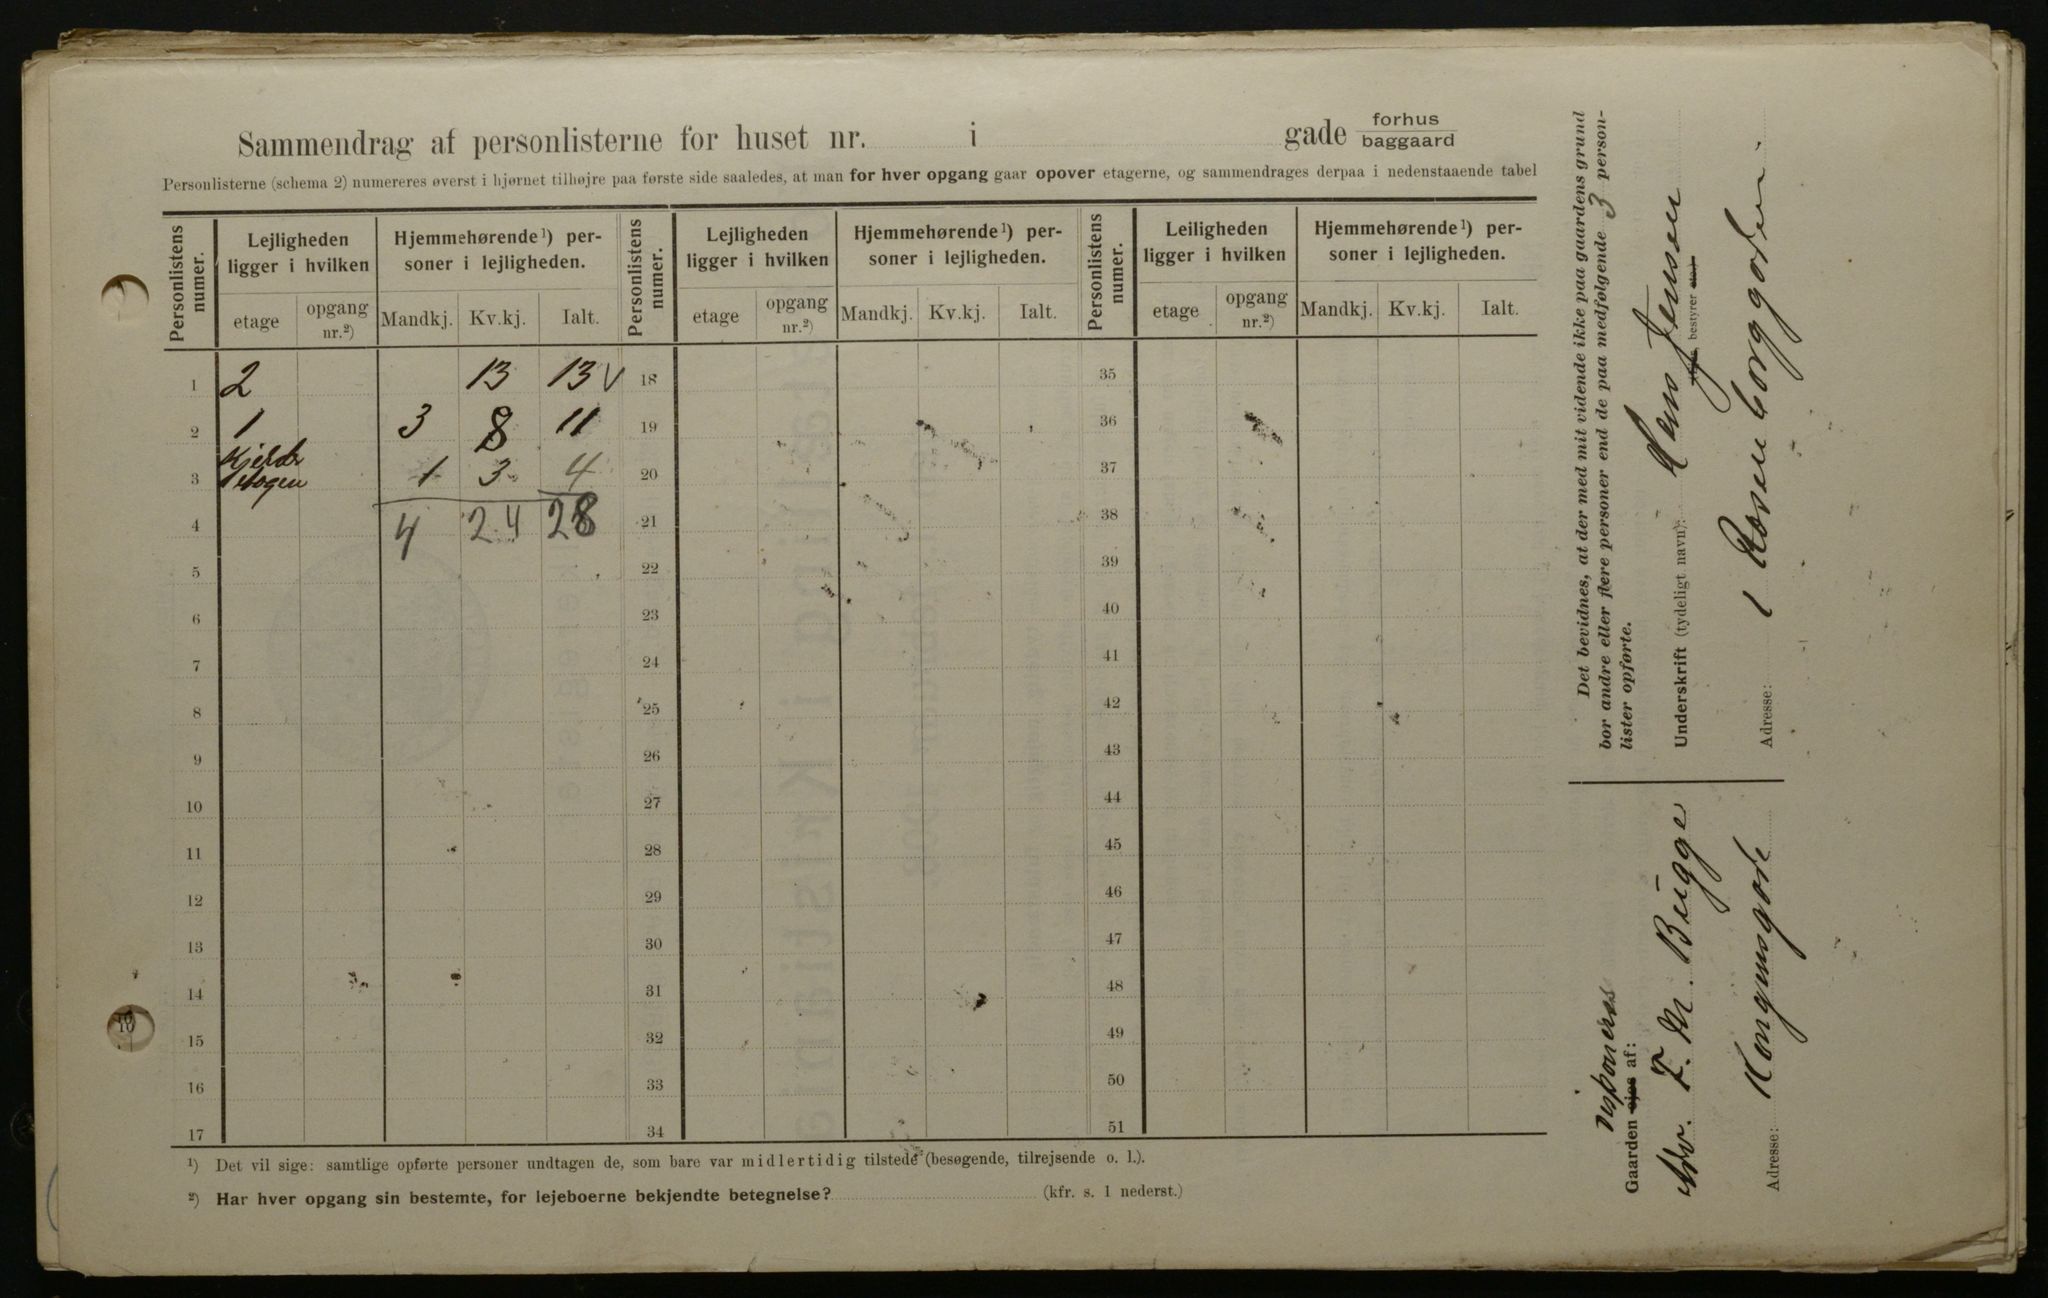 Sammendrag af personlisterne for huset nr. i gade forhus baggaard
Personlisterne (schema 2) numereres øverst i hjørnet tilhøjre paa første side saaledes, at man for hver opgang gaar opover etagerne, og sammendrages derpaa i nedenstaaende tabel
Personlistens numer. Lejligheden ligger i hvilken Hjemmehørende ¹) personer i lejligheden. Personlistens numer. Lejligheden ligger i hvilken Hjemmehørende ¹) personer i lejligheden. Personlistens numer. Leiligheden ligger i hvilken Hjemmehørende ¹) personer i lejligheden.
etage opgang nr.²) Mandkj. Kv.kj. Ialt. etage opgang nr.²) Mandkj. Kv.kj. Ialt. etage opgang nr.²) Mandkj. Kv.kj. Ialt.
1 2 13 13 V 18 35
2 1 3 8 11 19 36
3 Kjelder etagen 1 3 4 20 37
4 4 24 28 21 38
5 22 39
6 23 40
7 24 41
8 25 42
9 26 43
10 27 44
11 28 45
12 29 46
13 30 47
14 31 48
15 32 49
16 33 50
17 34 51
¹) Det vil sige: samtlige opførte personer undtagen de, som bare var midlertidig tilstede (besøgende, tilrejsende o. l.).
²) Har hver opgang sin bestemte, for lejeboerne bekjendte betegnelse? (kfr. s. 1 nederst.)
Det bevidnes, at der med mit vidende ikke paa gaardens grund
bor andre eller flere personer end de paa medfølgende 3 person-
lister opførte.
Underskrift (tydeligt navn): Jensen
bestyrer
Adresse: 1 Rosenborggaden.
disponeres
Gaarden ejes af:
Adv. F. M. Bugge
Adresse: Kongensgade